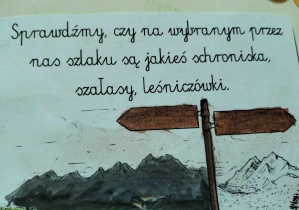 Sprawdźmy, czy na wybranym przez
nas szlaku są jakieś schroniska,
szałasy, leśniczówki.